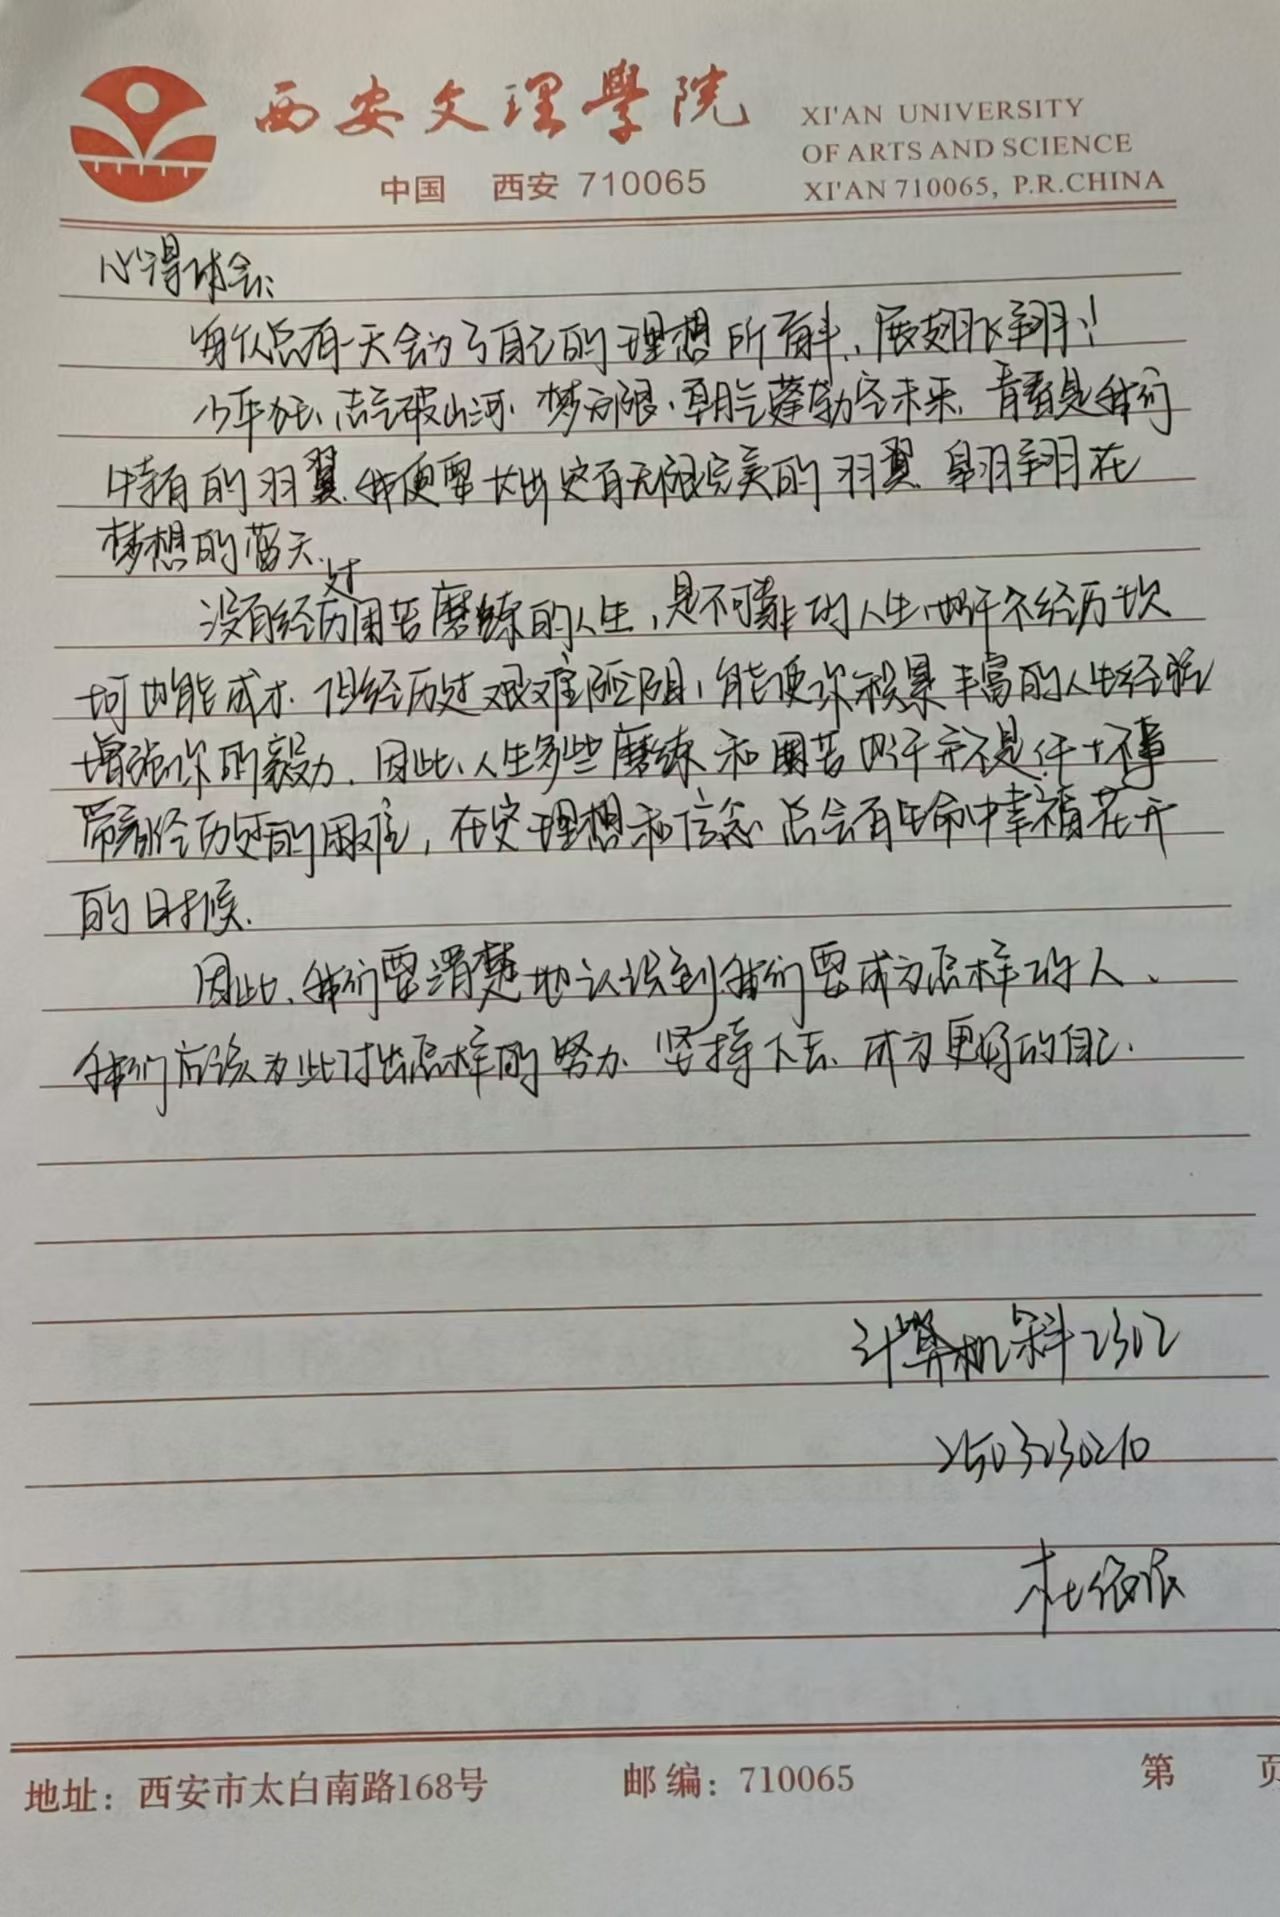 西安文理學院
中国 西安 710065
XI'AN UNIVERSITY
OF ARTS AND SCIENCE
XI'AN 710065, P.R.CHINA
心得体会:
我们总有一天会为了自己的理想所奋斗,展翅飞翔!
少年狂,志气破山河,梦无限,朝气蓬勃在未来,青春是我们
特有的羽翼,我便要长出它有无限完美的羽翼,翱翔在
梦想的蓝天.
没有经历过困苦磨练的人生,是不可靠的人生,也许不经历坎
坷也能成才,但经历过艰难险阻,能使你积累丰富的人生经验
增强你的毅力.因此,人生多些磨练和困苦也许并不是件坏事
带着经历过的困难,在理想和信念总会有生命中幸福花开
的时候.
因此,我们要清楚地认识到我们要成为怎样的人、
我们应该为此付出怎样的努力.坚持下去,成为更好的自己.
计算机科2302
2503230210
杜依
地址：西安市太白南路168号 邮编：710065 第 页